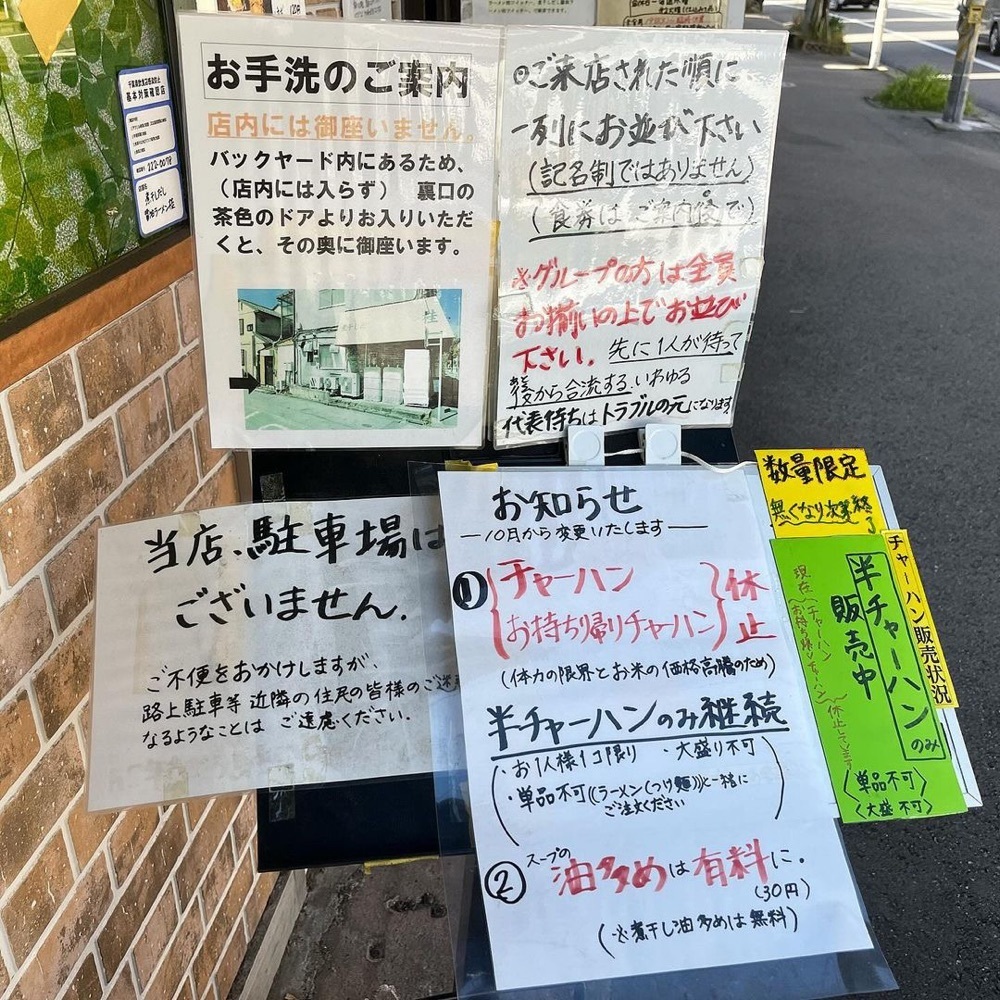 お手洗のご案内
店内には御座いません。
バックヤード内にあるため、
(店内には入らず) 裏口の
茶色のドアよりお入りいただ
くと、その奥に御座います。
◎ご来店された順に
一列にお並び下さい
(記名制ではありません)
(食券はご案内後で)
※グループの方は全員
お揃いの上でお並び
下さい。先に1人が待って
後から合流する、いわゆる
代表待ちはトラブルの元になります
基本対策確認店
煮干しだし
当店、駐車場は
ございません.
ご不便をおかけしますが、
路上駐車等 近隣の住民の皆様のご迷
なるようなことは ご遠慮ください.
お知らせ
―10月から変更いたします―
① チャーハン
お持ち帰りチャーハン
休止
(体力の限界とお米の価格高騰のため)
半チャーハンのみ継続
・お1人様1コ限り ・大盛り不可
・単品不可((ラーメン(つけ麺))と一緒に
ご注文ください
② スープの
油多めは有料に.
(30円)
(※煮干し油多めは無料)
数量限定
無くなり次第終了
チャーハン販売状況
半チャーハンのみ
販売中
現在(チャーハン
お持ち帰りチャーハン)休止しています
〈単品不可〉
〈大盛不可〉